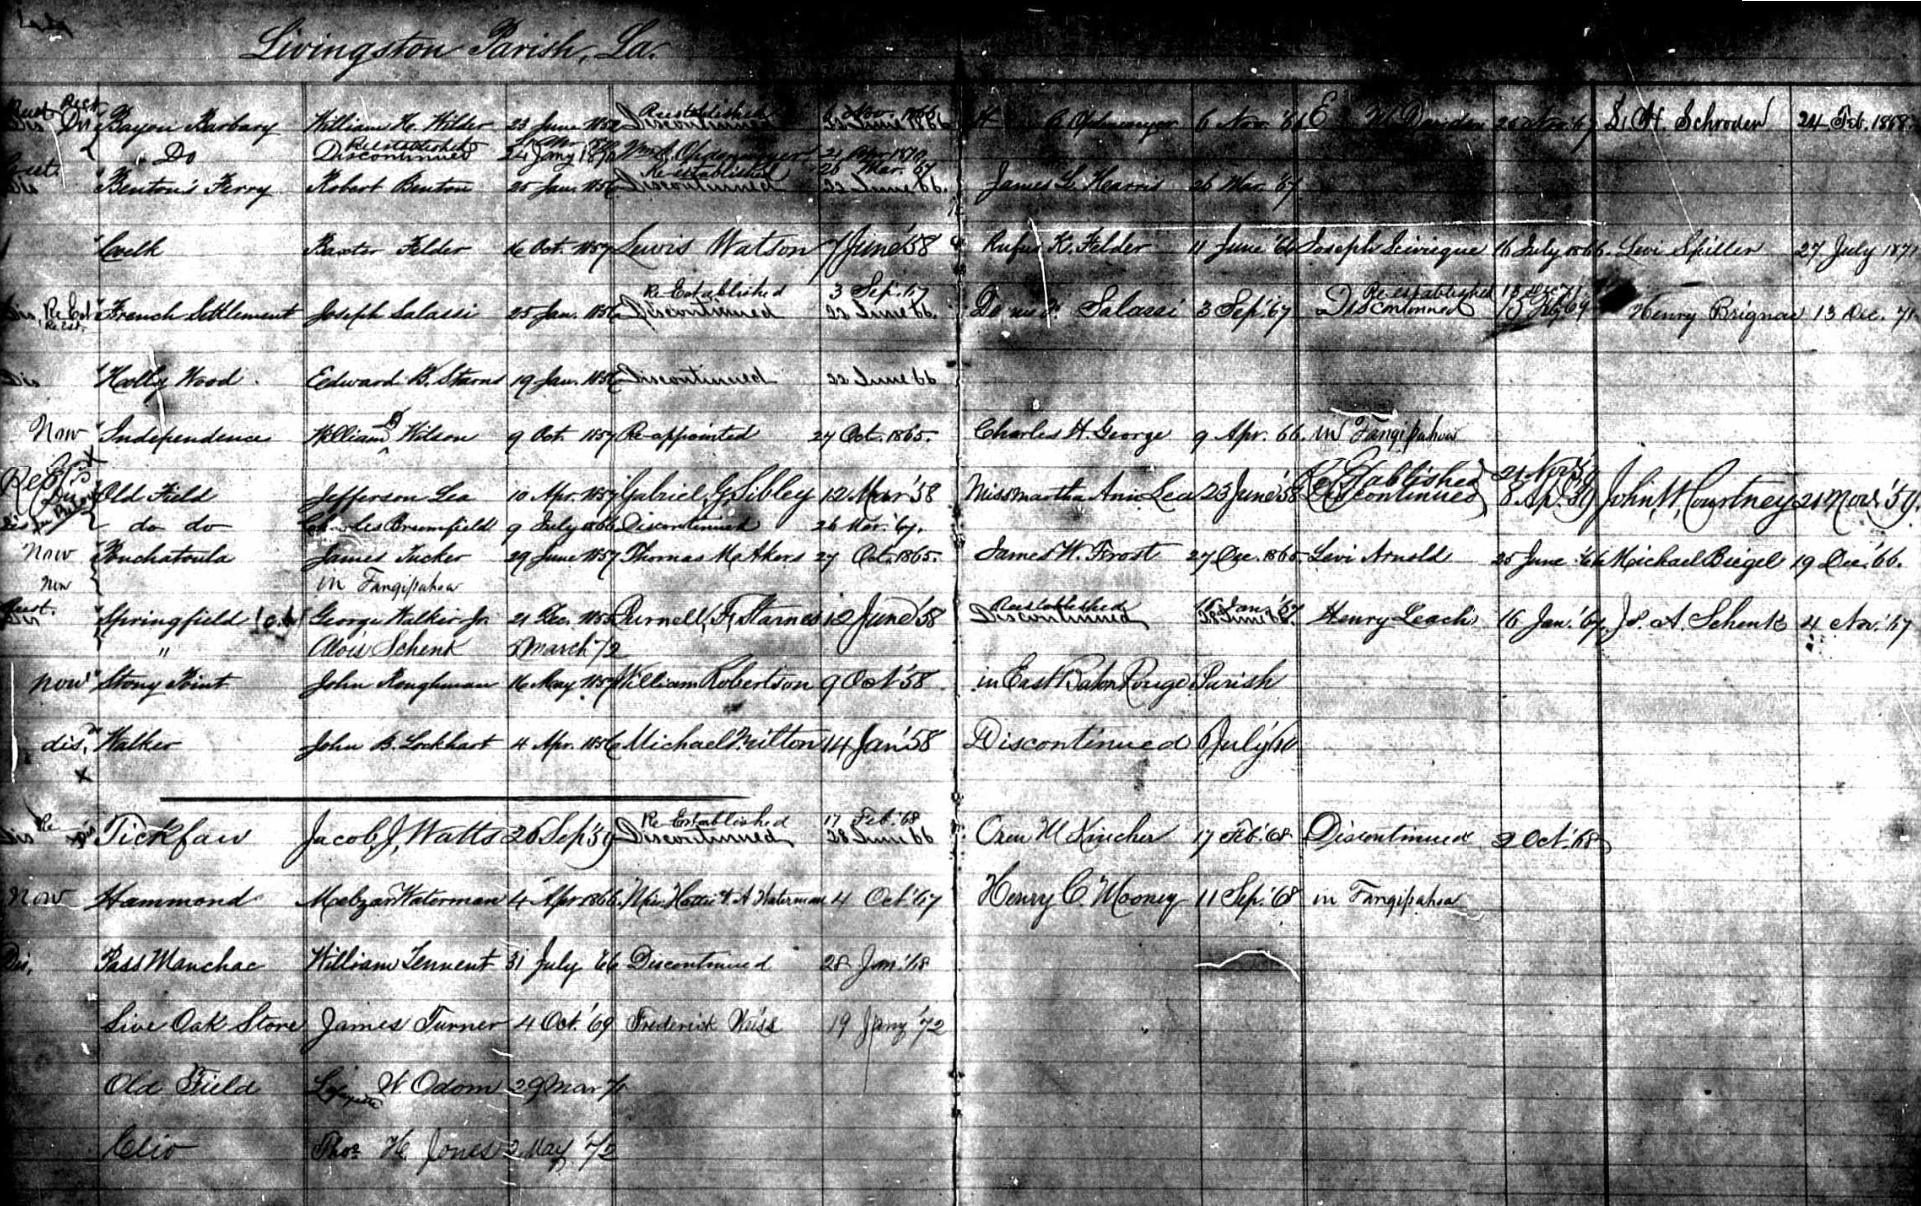 Livingston Parish, La.
Dis Bayou Barbary William H. Wilder 23 June Reestablished Discontinued 6 Nov. 1866 22 June 1866 6 Nov. '66 E W Davidson 25 Nov. '67 L. H. Schroder 24 Feb. 1868
" Do Reestablished Discontinued 24 Jany 1870 Wm 21 Mar 1870
Dis Benton's Ferry Robert Benton 25 Jan. 1856 Re-established Discontinued 26 Mar. '67 22 June '66 James L. Harris 26 Mar. '67
Baxter Felder 16 Oct. 1857 Lewis Watson 7 June '58 Rufus K. Felder 11 June '60 Joseph 16 July 1866 Levi Spiller 27 July 1871
Dis Re Est French Settlement Joseph Salassi 25 Jan. 1856 Re-Established Discontinued 3 Sep. '67 22 June '66 Salassi 3 Sep. '67 Re-established Discontinued 13 Dec 71 Henry Brignac 13 Dec. 71
Dis Holly Wood Edward B. Starns 19 Jan. 1856 Discontinued 22 June '66
Now Independence William Wilson 9 Oct. 1857 Re-appointed 27 Oct. 1865. Charles H. George 9 Apr. 66. in Tangipahoa
Old Field Jefferson Lea 10 Apr. 1857 Gabriel G. Sibley 12 Mar '58 Miss Martha Ann Lea 23 June '58 Re Established Discontinued 21 Nov 59 8 Ap. 59 John W. Courtney 21 Nov. '59.
dis do do Charles Brumfield 9 July 1866 Discontinued 26 Mar. '67.
Now Ponchatoula James Tucker 29 June 1857 Thomas McAkers 27 Oct. 1865. James W. Frost 27 Dec. 1865 Levi Arnold 25 June '66 Michael Biegel 19 Dec. '66.
Now in Tangipahoa
Springfield George Walker Jr. 21 Dec. 1855 Purnell F. Starnes 12 June '58 Reestablished Discontinued 16 Jan. '67 28 June '66. Henry Leach 16 Jan. '67 A. Schenk 4 Nov. '67
" Alois Schenk March 72
now Stony Point John Roughman 16 May 1857 William Robertson 9 Oct '58 in East Baton Rouge Parish
dis. Walker John B. Lockhart 4 Apr. 1856 Michael Milton 14 Jan '58 Discontinued July '60
Dis Re Dis Tickfaw Jacob J. Watts 26 Sep '59 Re-Established Discontinued 17 Feb. '68 28 June 66 Oren M Kincher 17 Feb. '68 Discontinued 2 Oct. '68
Now Hammond Waterman 4 Apr 1866. Miss Hattie A Waterman 4 Oct '67 Henry C. Mooney 11 Sep. '68 in Tangipahoa
Dis. Pass Manchac William Tennent 31 July '66 Discontinued 28 Jan. '68
Live Oak Store James Turner 4 Oct. '69 Frederick Weiss 19 Jany '72
Old Field Lafayette W Odom 29 Mar 71
Clio Thos H. Jones 2 May 72